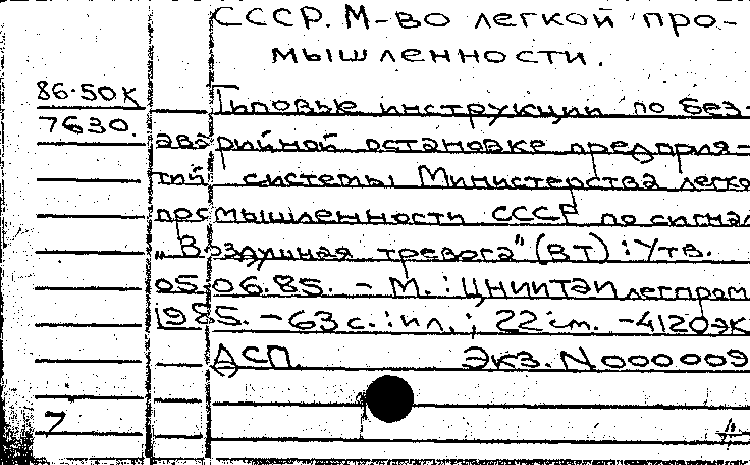 СССР. М-во легкой про-
мышленности.
86-50К
7630.
Типовые инструкции по без-
аварийной остановке предприя-
тий системы Министерства легко
промышленности СССР по сигнал
„Воздушная тревога" (ВТ) : Утв.
05.06.85. – М. : ЦНИИТЭИлегпром
1985. – 63 с. : ил. ; 22 см. – 4120эк
ДСП. Экз. N 000009
7